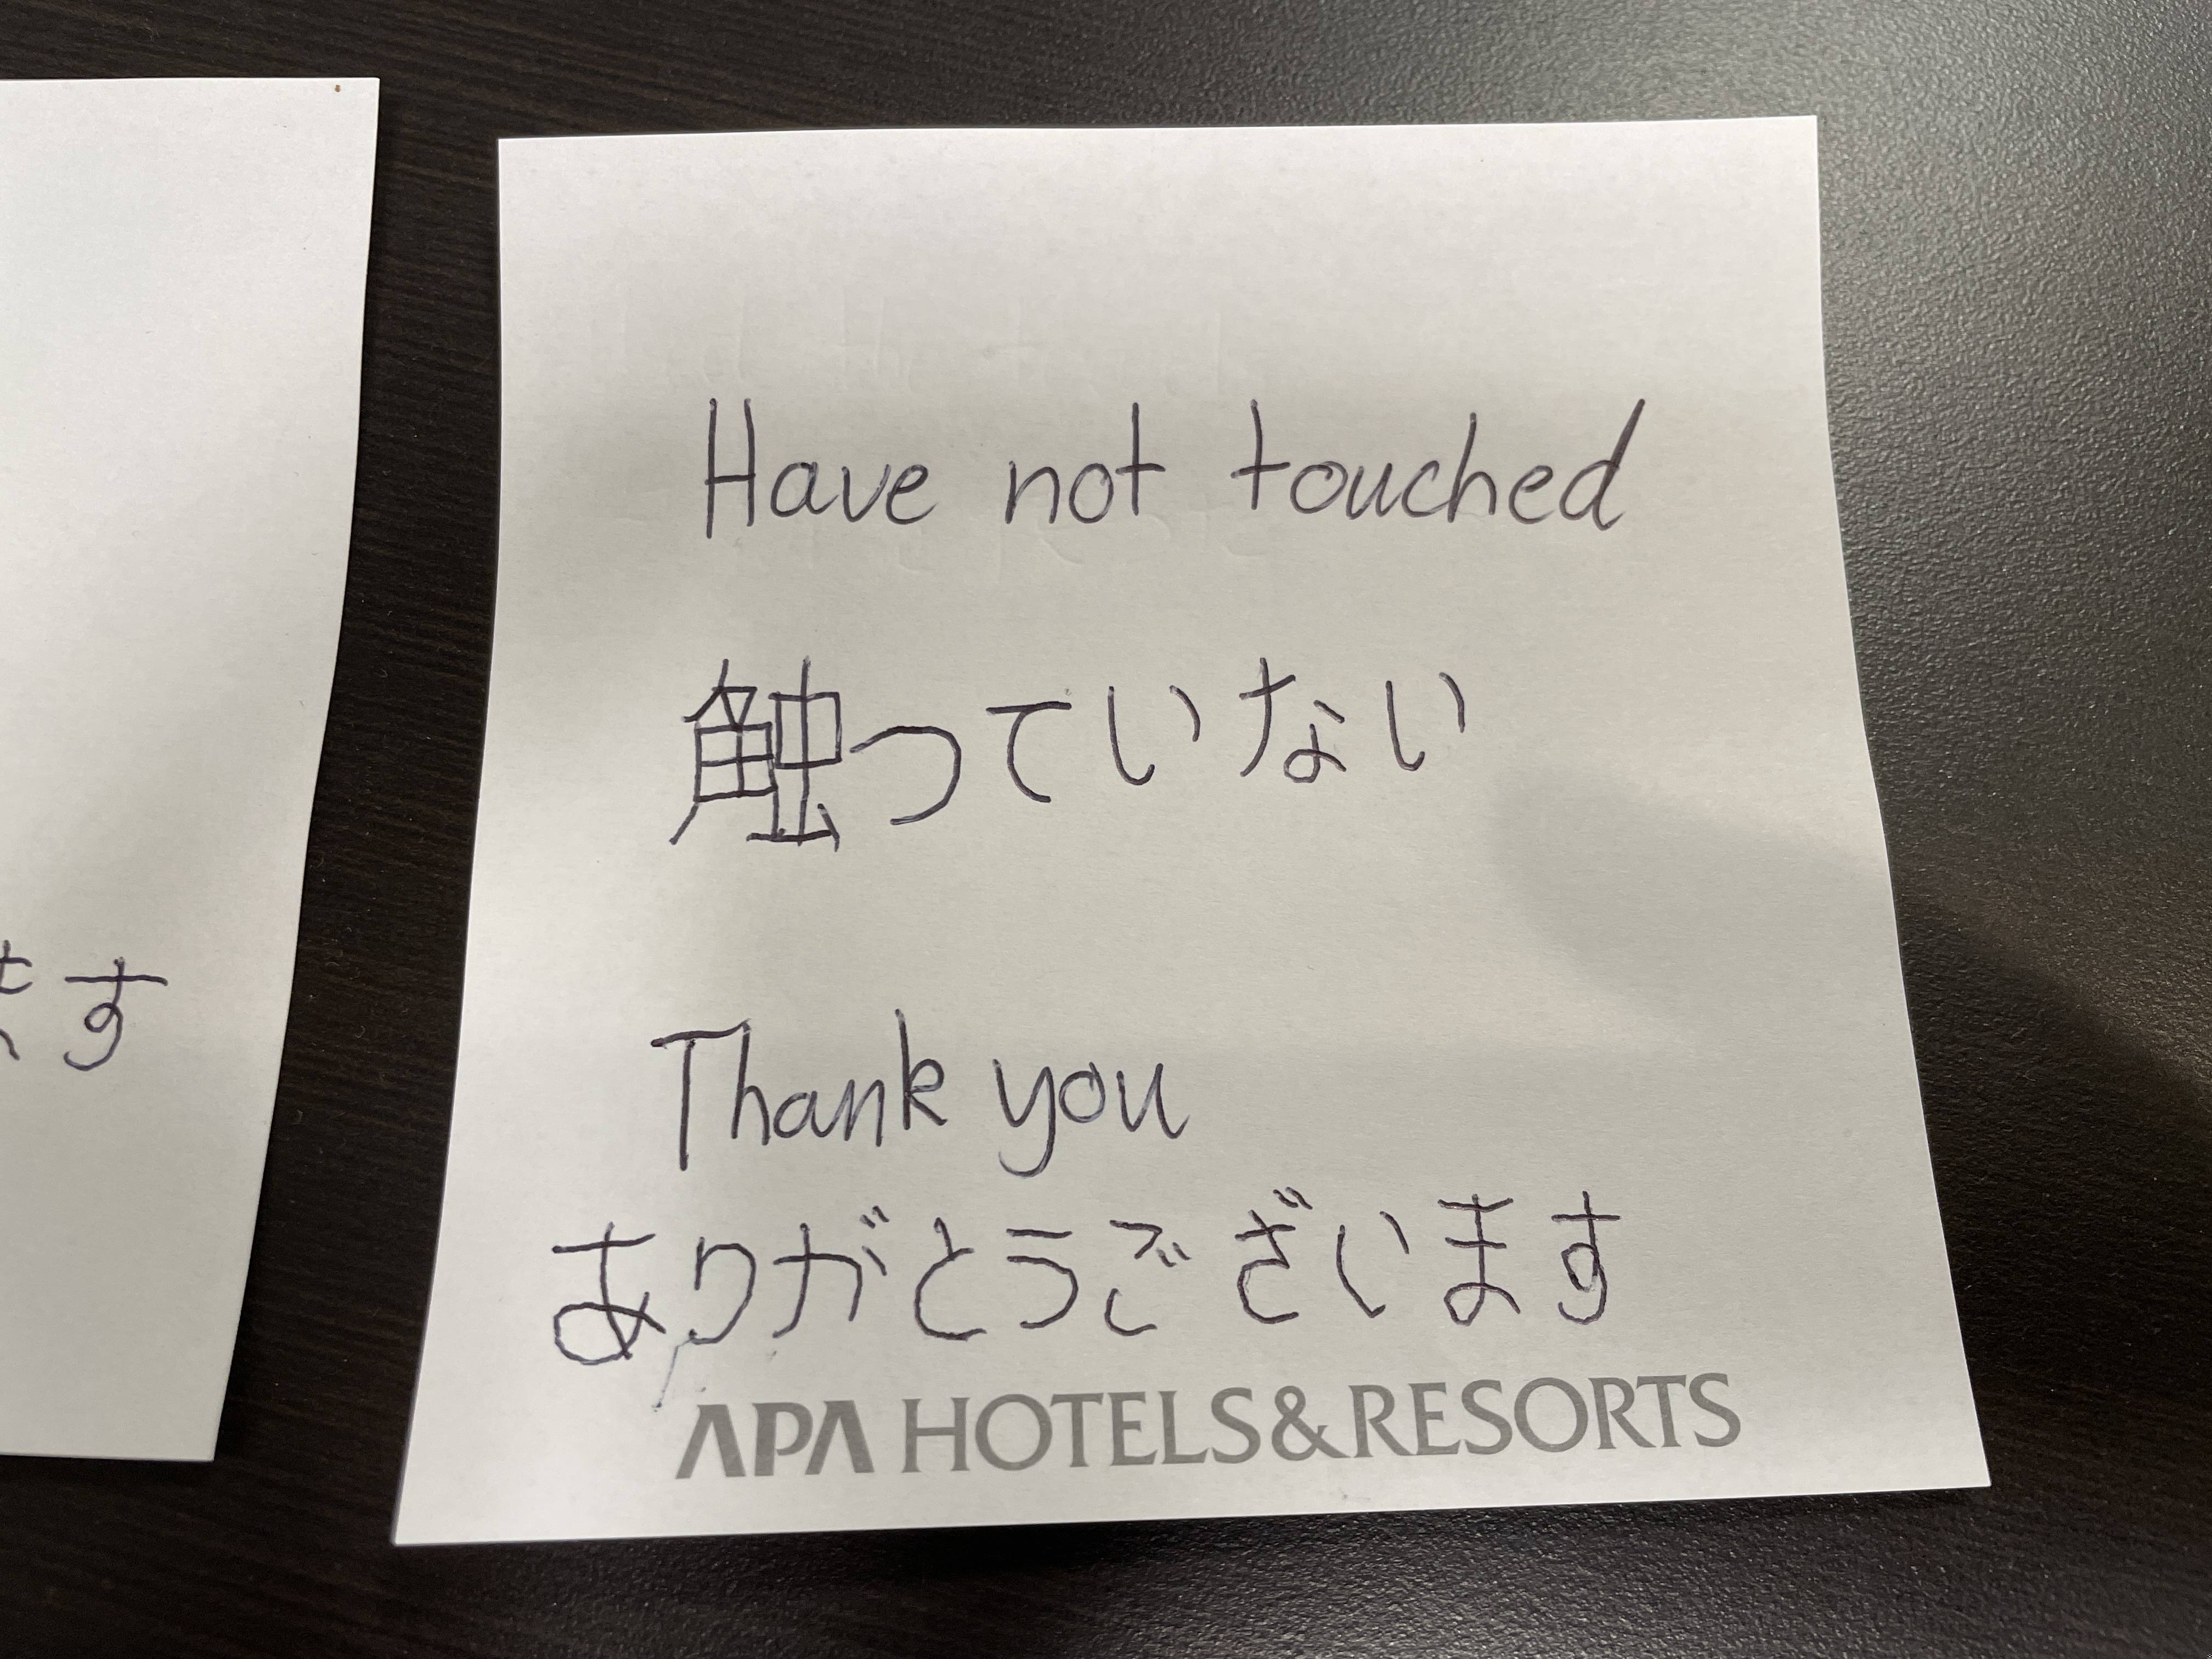 ます
Have not touched
触っていない
Thank you
ありがとうございます
APA HOTELS&RESORTS